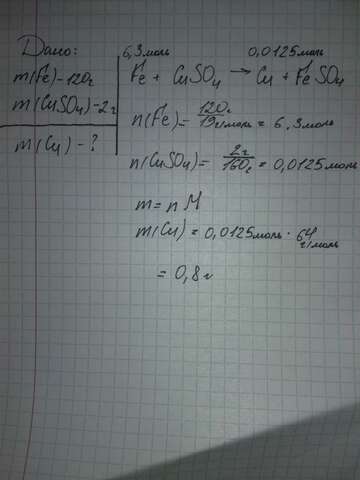 Дано:
m(Fe)-120г
m(CuSO4)-2г
m(Cu)-?
6,3моль 0,0125моль
Fe + CuSO4 → Cu + FeSO4
n(Fe)= 120г/19г/моль = 6,3моль
n(CuSO4)= 2г/160г = 0,0125моль
m=nM
m(Cu)=0,0125моль·64г/моль
=0,8г